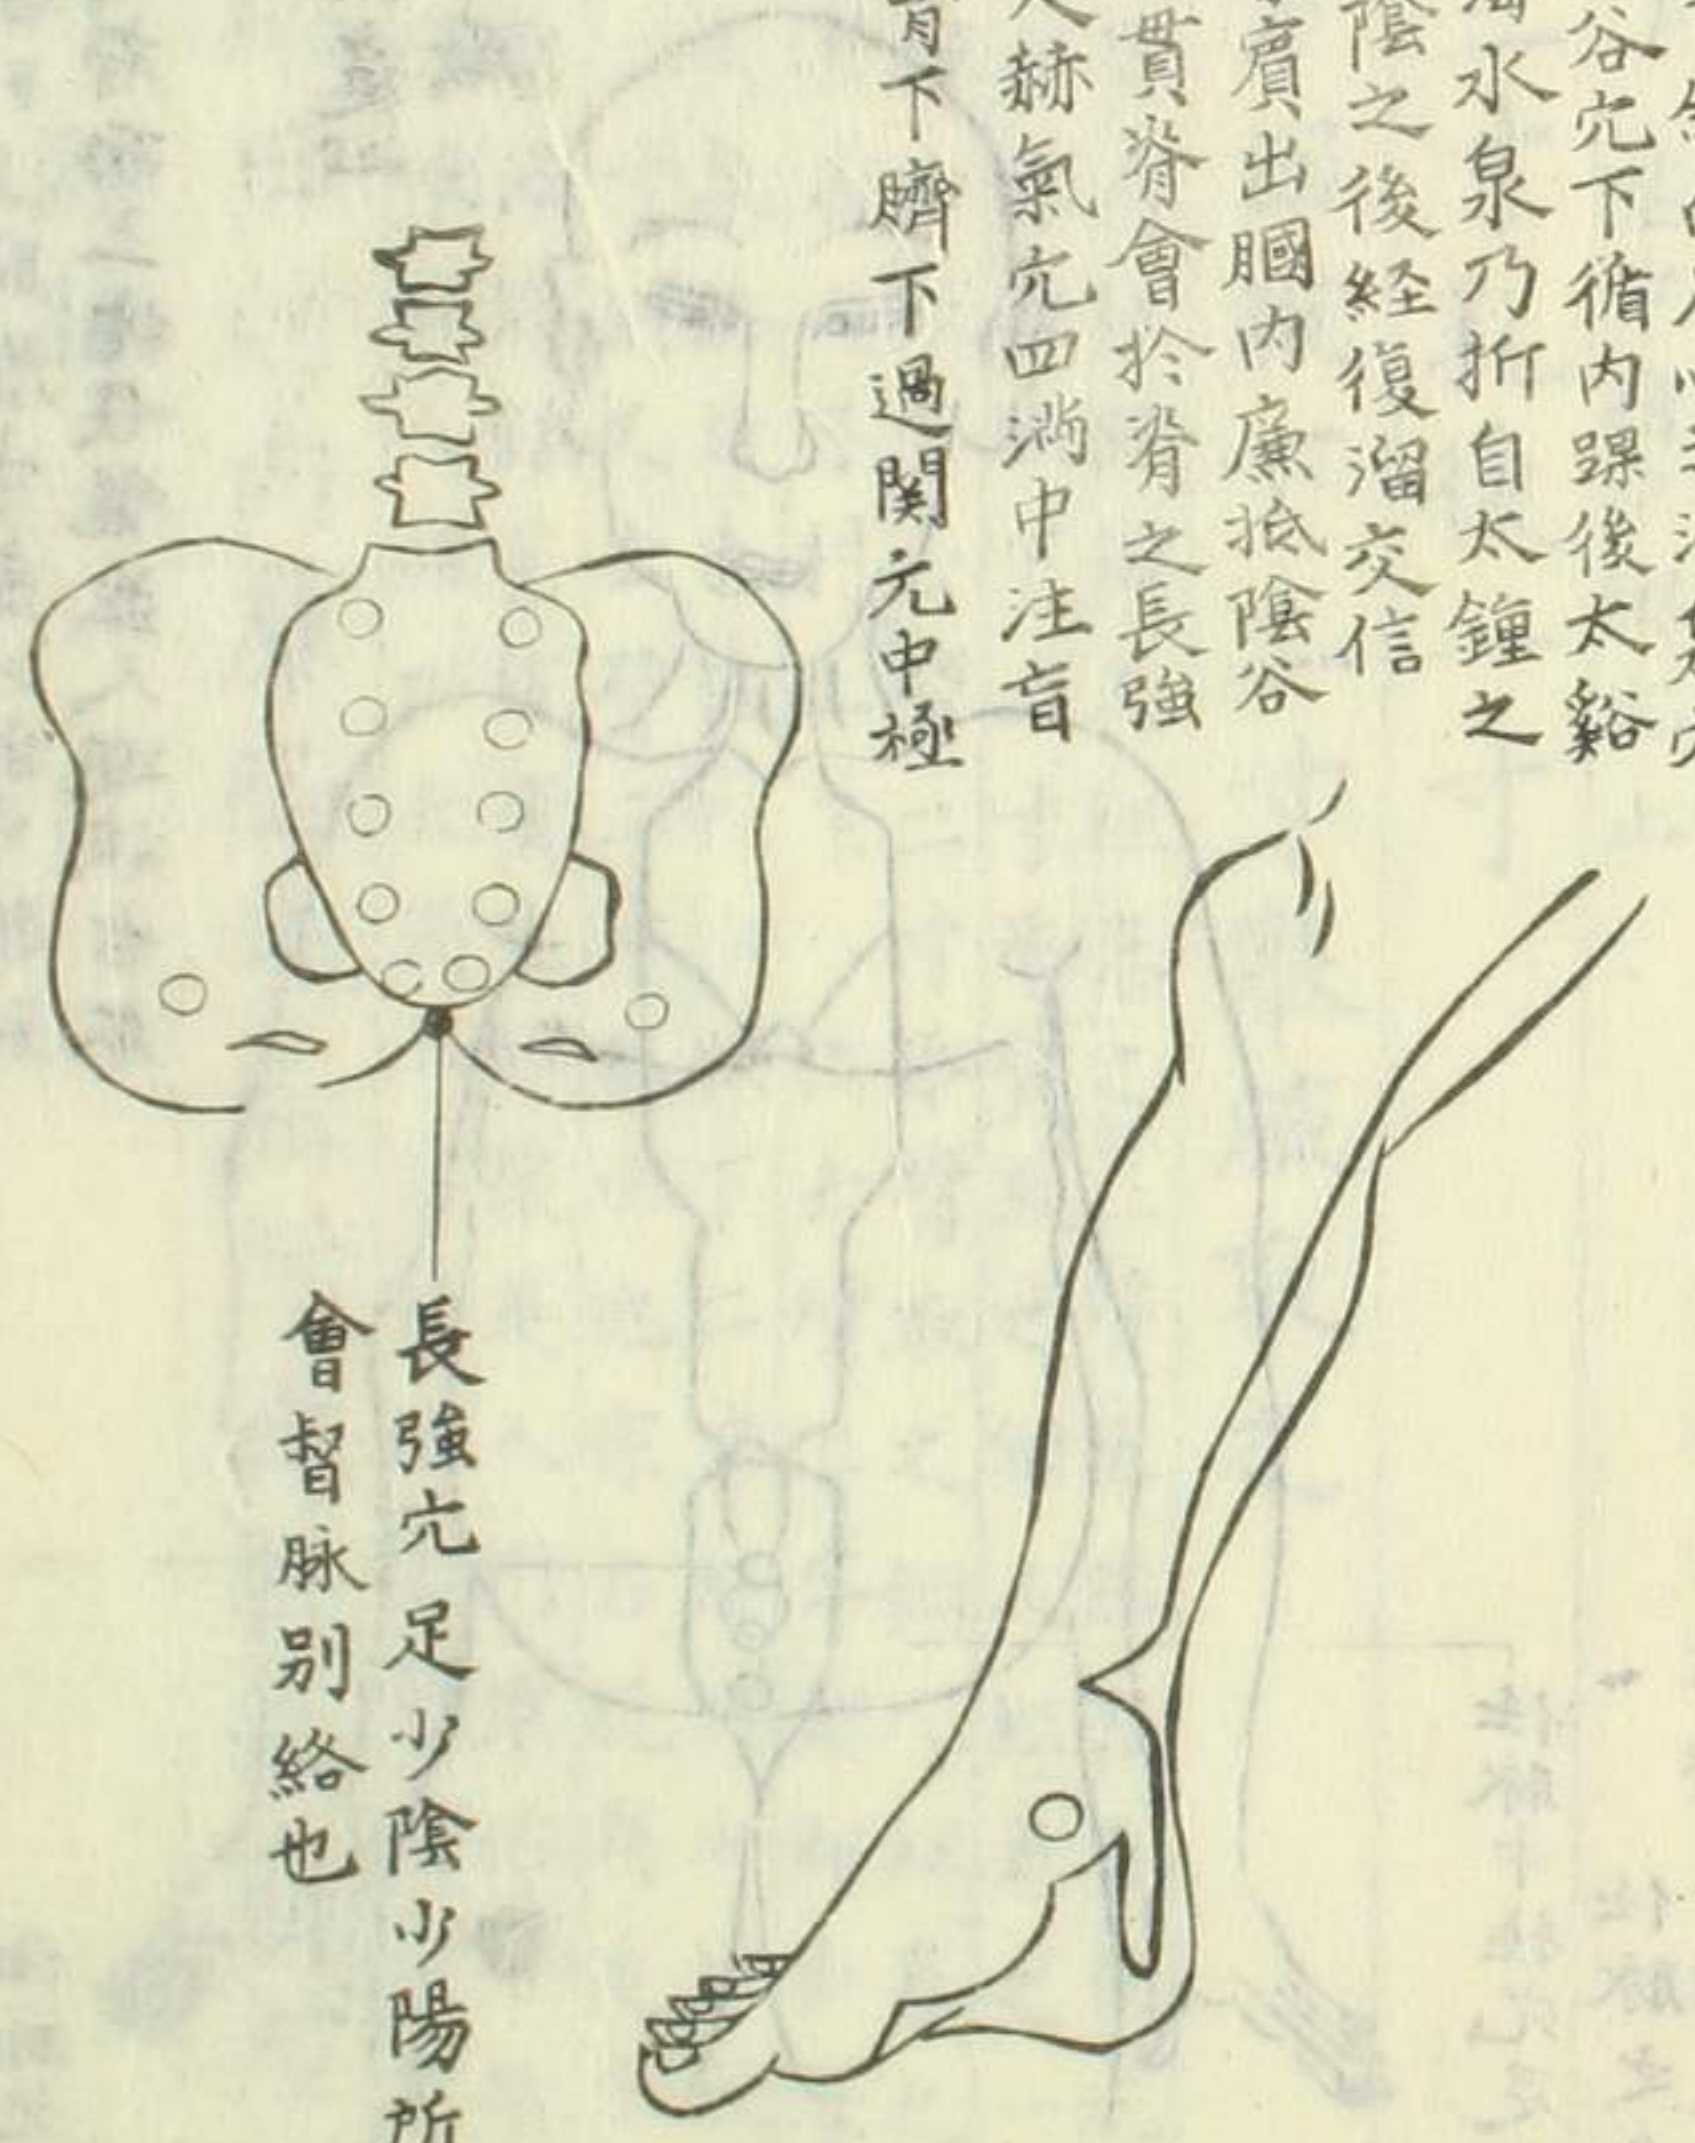 谷穴下循内踝後太谿
水泉乃折自太鐘之
陰之後経復溜交信
賔出膕内廉抵陰谷
貫脊會於脊之長強
赫氣穴四満中注盲
下臍下過関元中極
長強穴足少陰少陽所
會督脉别絡也